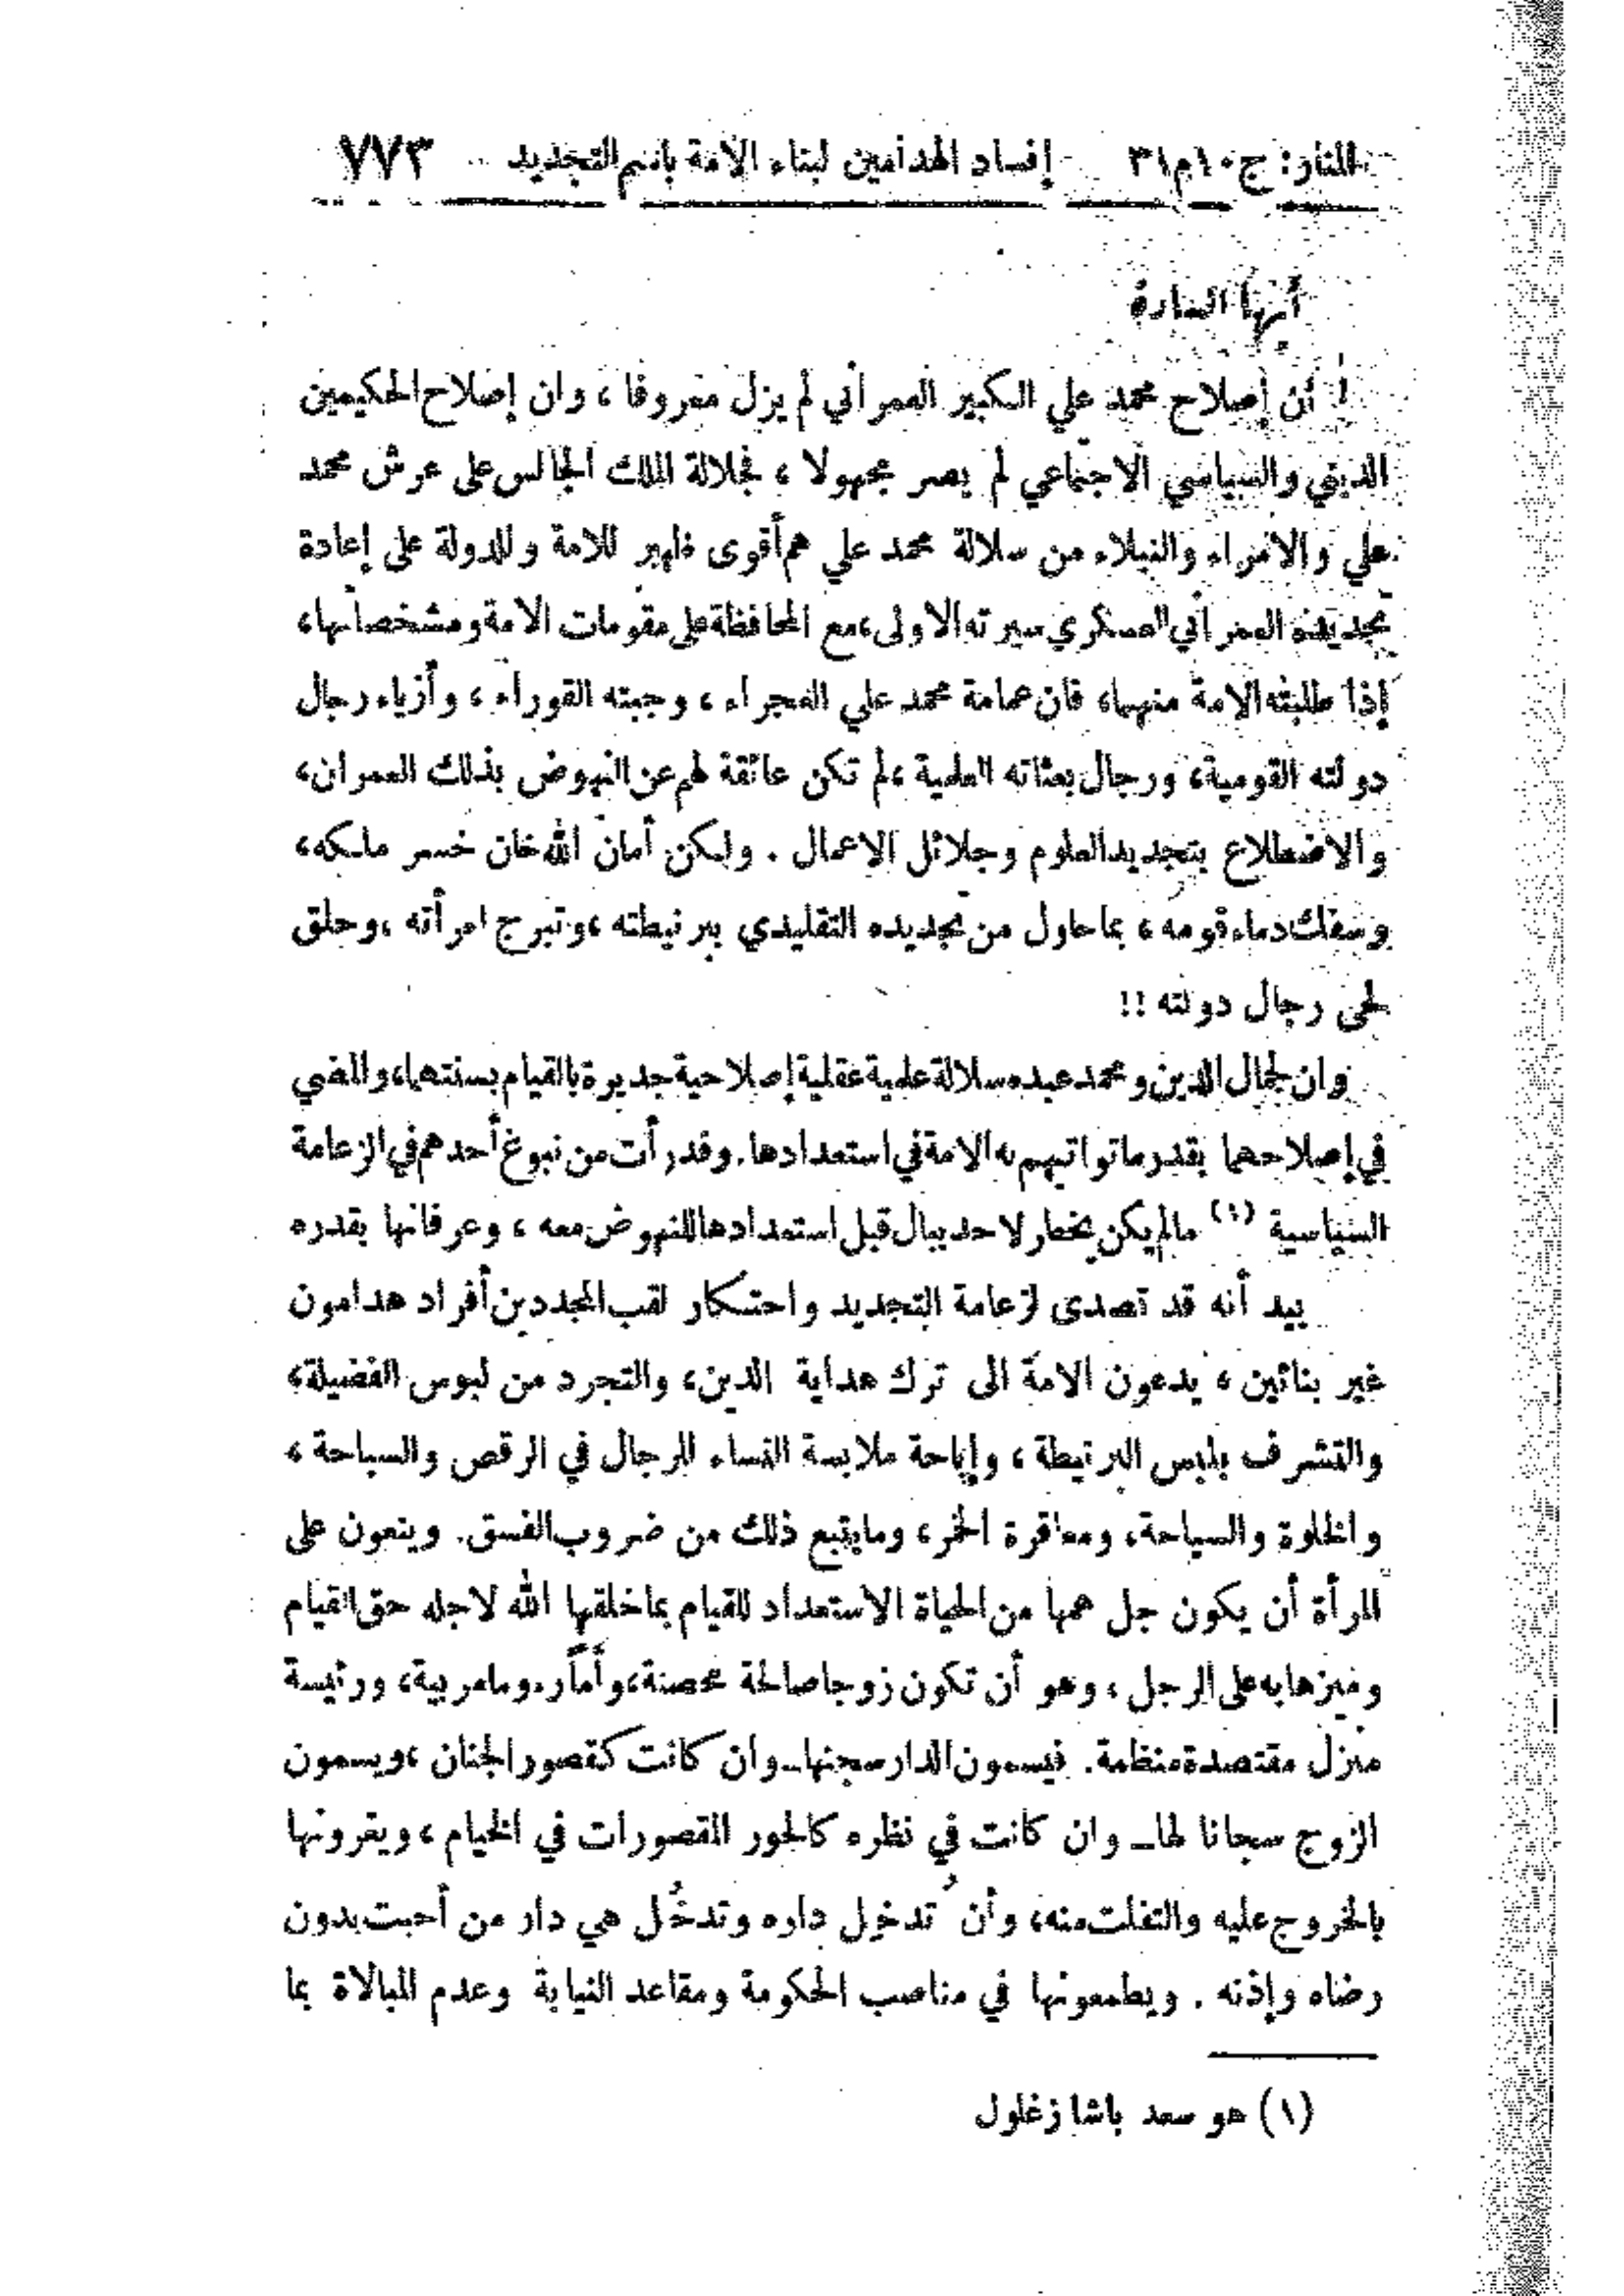 المنار: ج ١٠ م ٣١ إفساد الهدامين لبناء الامة باسم التجديد ٧٧٣
أيها السادة
ان إصلاح محمد علي الكبير العمراني لم يزل معروفا ، وان إصلاح الحكيمين
الديني والسياسي الاجتماعي لم يصر مجهولا ، فجلالة الملك الجالس على عرش محمد
علي والامراء والنبلاء من سلالة محمد علي هم أقوى ظهير للامة وللدولة على إعادة
تجديده العمراني العسكري سيرته الاولى ، مع المحافظة على مقومات الامة ومشخصاتها ،
إذا طلبته الامة منهما ، فان عمامة محمد علي العجراء ، وجبته القوراء ، وأزياء رجال
دولته القومية ، ورجال بعثاته العلمية ، لم تكن عائقة لهم عن النهوض بذلك العمران ،
والاضطلاع بتجديد العلوم وجلائل الاعمال . ولكن أمان الله خان خسر ملكه ،
وسفك دماء قومه ، بما حاول من تجديده التقليدي ببرنيطته ، وتبرج امرأته ، وحلق
لحى رجال دولته !!
وان لجمال الدين ومحمد عبده سلالة علمية عقلية إصلاحية جديرة بالقيام بسنتهما ، والمضي
في إصلاحهما بقدر ما تواتيهم به الامة في استعدادها . وقد رأت من نبوغ أحدهم في الزعامة
السياسية (١) ما لم يكن يخطر لاحد ببال قبل استعدادها للنهوض معه ، وعرفانها بقدره
بيد أنه قد تصدى لزعامة التجديد واحتكار لقب المجددين أفراد هدامون
غير بنائين ، يدعون الامة الى ترك هداية الدين ، والتجرد من لبوس الفضيلة ،
والتشرف بلبس البرنيطة ، وإباحة ملابسة النساء للرجال في الرقص والسباحة ،
والخلوة والسياحة ، ومعاقرة الخمر ، وما يتبع ذلك من ضروب الفسق . وينعون على
المرأة أن يكون جل همها من الحياة الاستعداد للقيام بما خلقها الله لاجله حق القيام
وميزها به على الرجل ، وهو أن تكون زوجا صالحة محصنة ، وأمًّا رءوما مربية ، ورئيسة
منزل مقتصدة منظمة . فيسمون الدار سجنها ــ وان كانت كقصور الجنان ، ويسمون
الزوج سجانا لها ــ وان كانت في نظره كالحور المقصورات في الخيام ، ويغرونها
بالخروج عليه والتفلت منه ، وأن تُدخِل داره وتدخُل هي دار من أحبت بدون
رضاه وإذنه . ويطمعونها في مناصب الحكومة ومقاعد النيابة وعدم المبالاة بما
(١) هو سعد باشا زغلول